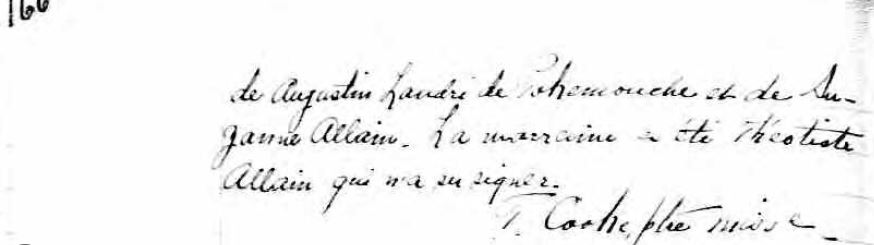 166
de Augustin Landri de Pokemouche et de Su-
zanne Allain. La marraine a été Théotiste
Allain qui n'a su signer.
T. Cooke, ptre miss.